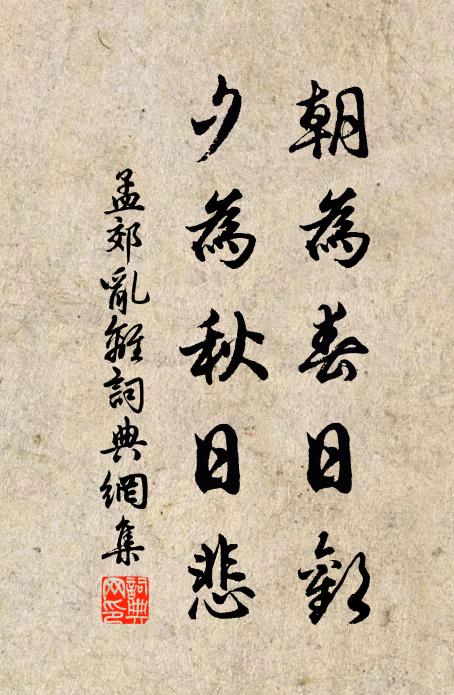 朝為春日歡
夕為秋日悲
孟郊亂離詞典網集
詞典網印